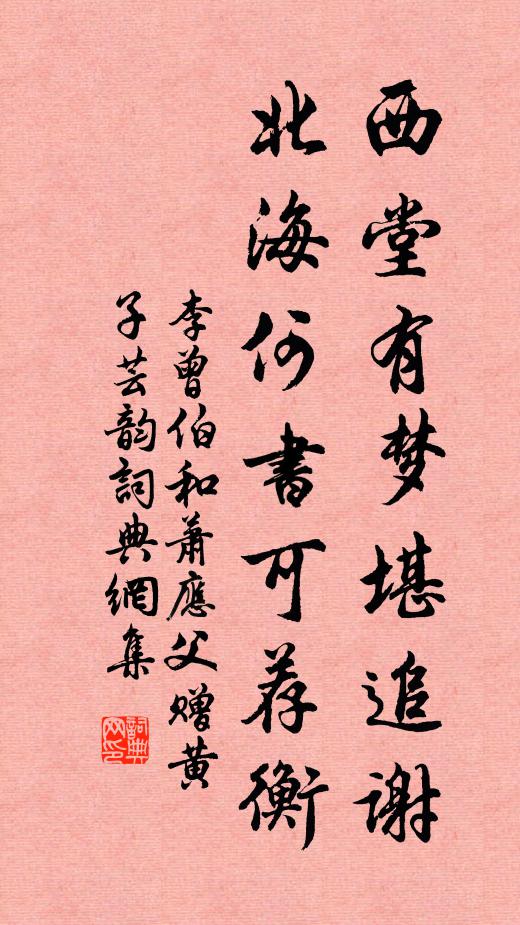 西堂有梦堪追谢
北海何书可荐衡
李曾伯和萧應父赠黄
子芸韵詞典網集
詞典網印